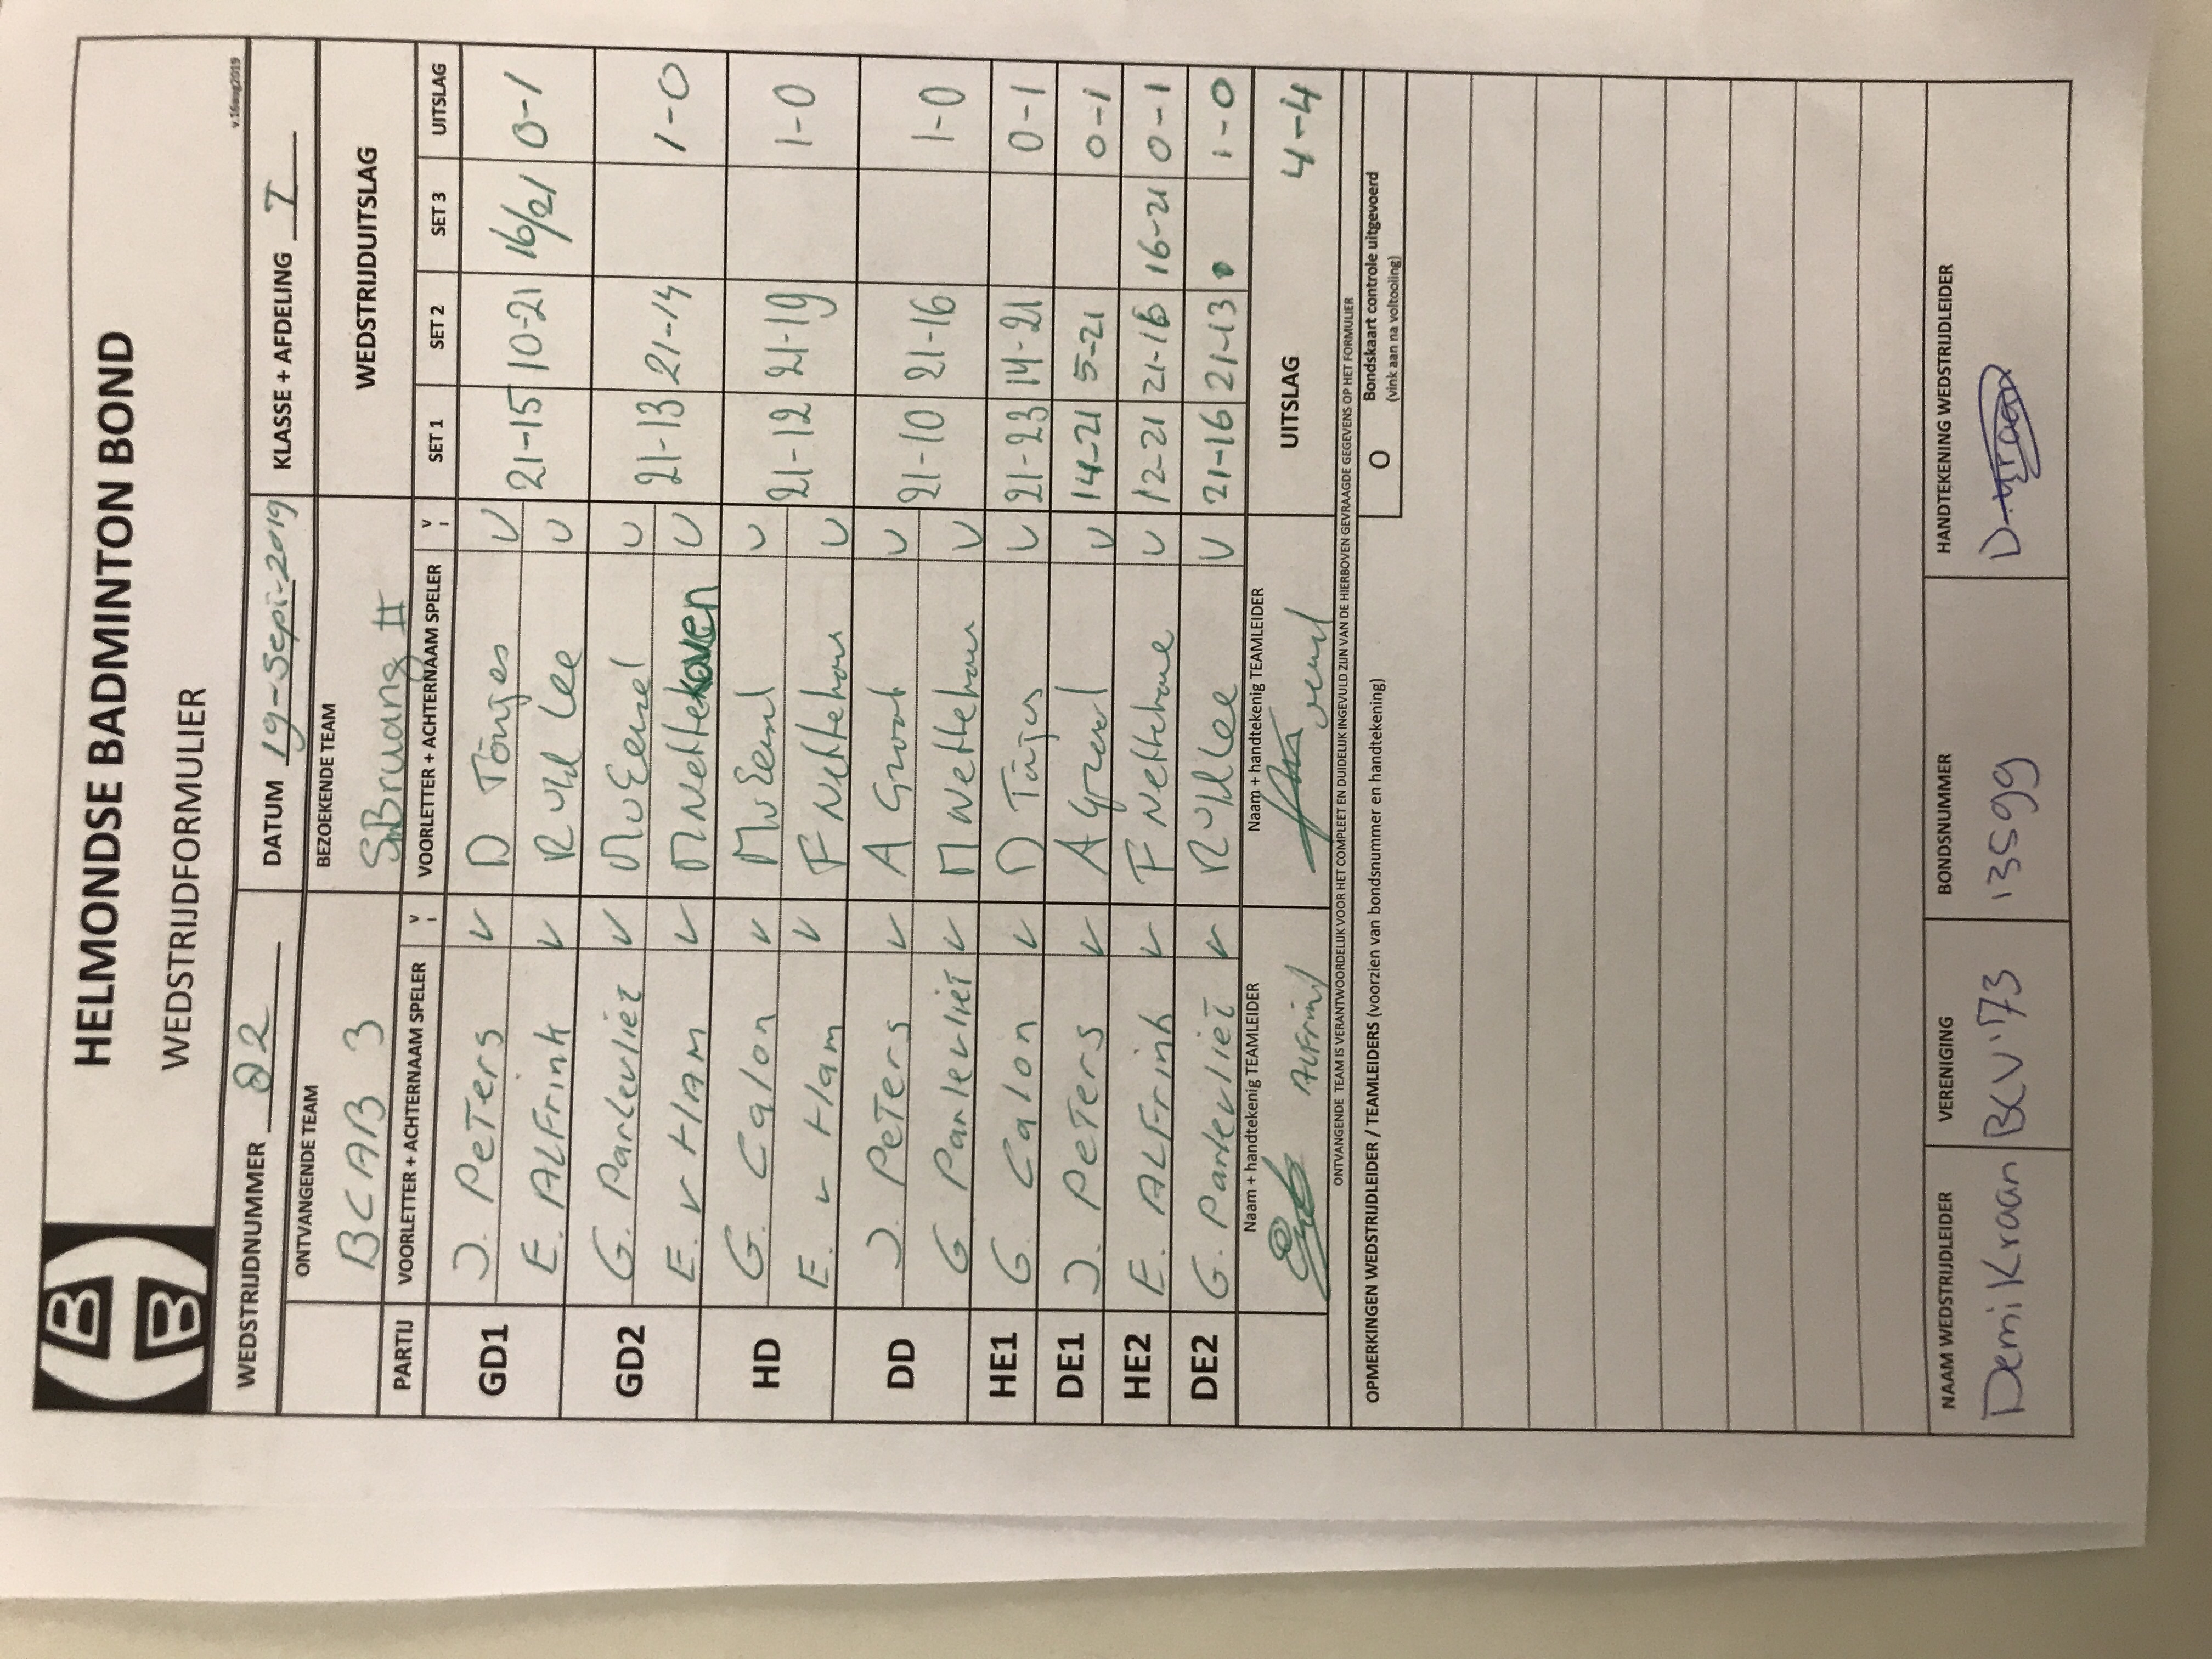 HELMONDSE BADMINTON BOND
WEDSTRIJDFORMULIER
v.16aug2019
WEDSTRIJDNUMMER 02 DATUM 19-Sept-2019 KLASSE + AFDELING I
ONTVANGENDE TEAM BEZOEKENDE TEAM WEDSTRIJDUITSLAG
BCAB 3 II
PARTIJ VOORLETTER + ACHTERNAAM SPELER V VOORLETTER + ACHTERNAAM SPELER V SET 1 SET 2 SET 3 UITSLAG
GD1 J. PeTers v D Tönjes V 21-15 10-21 16/21 0-1
E. ALFrink v R vd Lee V
GD2 G. Parlevliet v U 21-13 21-14 1-0
E. v HAM v M Nettekoven U
HD G. Calon v U 21-12 21-19 1-0
E. v Ham v F U
DD J. PeTers v A U 21-10 21-16 1-0
G Parlevliet v M V
HE1 G Calon v D V 21-23 14-21 0-1
DE1 J. PeTers v A V 14-21 5-21 0-1
HE2 E. ALFrink v F U 12-21 21-16 16-21 0-1
DE2 G. Parlevliet v R vd Lee V 21-16 21-13 1-0
Naam + handtekenig TEAMLEIDER Naam + handtekenig TEAMLEIDER UITSLAG 4-4
ALFrink
ONTVANGENDE TEAM IS VERANTWOORDELIJK VOOR HET COMPLEET EN DUIDELIJK INGEVULD ZIJN VAN DE HIERBOVEN GEVRAAGDE GEGEVENS OP HET FORMULIER
OPMERKINGEN WEDSTRIJDLEIDER / TEAMLEIDERS (voorzien van bondsnummer en handtekening) O Bondskaart controle uitgevoerd
(vink aan na voltooiing)
NAAM WEDSTRIJDLEIDER VERENIGING BONDSNUMMER HANDTEKENING WEDSTRIJDLEIDER
Demi Kraan BCV'73 13599